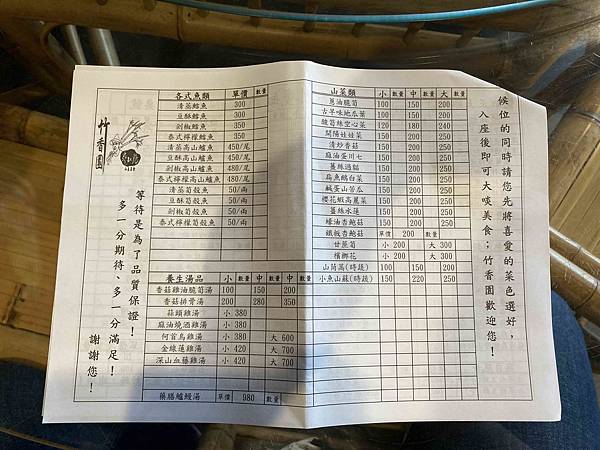 候位的同時請您先將喜愛的菜色選好，
入座後即可大啖美食；竹香園歡迎您！
山菜類 小 數量 中 數量 大 數量
蔥油脆筍 100 150 200
古早味地瓜葉 100 150 200
酸筍絲空心菜 120 180 240
開陽娃娃菜 150 200 250
清炒香菇 150 200 250
麻油蛋川七 150 200 250
薑絲過貓 150 200 250
扁魚鵝白菜 150 200 250
鹹蛋山苦瓜 150 200 250
櫻花蝦高麗菜 150 200 250
薑絲水蓮 150 200 250
蠔油杏鮑菇 150 200 250
鐵板杏鮑菇 單價 200 數量
甘蔗筍 小 200 大 300
檳榔花 小 200 大 300
山茼蒿(時蔬) 100 150 200
小魚山蘇(時蔬) 150 220 250
各式魚類 單價 數量
清蒸鱈魚 300
豆酥鱈魚 300
剁椒鱈魚 350
泰式檸檬鱈魚 350
清蒸高山鱸魚 450/尾
豆酥高山鱸魚 450/尾
剁椒高山鱸魚 480/尾
泰式檸檬高山鱸魚 480/尾
清蒸筍殼魚 50/兩
豆酥筍殼魚 50/兩
剁椒筍殼魚 50/兩
泰式檸檬筍殼魚 50/兩
養生湯品 小 數量 中 數量 中 數量
香菇雞油脆筍湯 100 150 200
香菇排骨湯 200 280 350
蒜頭雞湯 小 380
麻油燒酒雞湯 小 380
何首烏雞湯 小 380 大 600
金線蓮雞湯 小 420 大 700
深山血藤雞湯 小 420 大 700
藥膳鱸鰻湯 單價 980 數量
竹香園
等待是為了品質保證！
多一分期待、多一分滿足！
謝謝您！